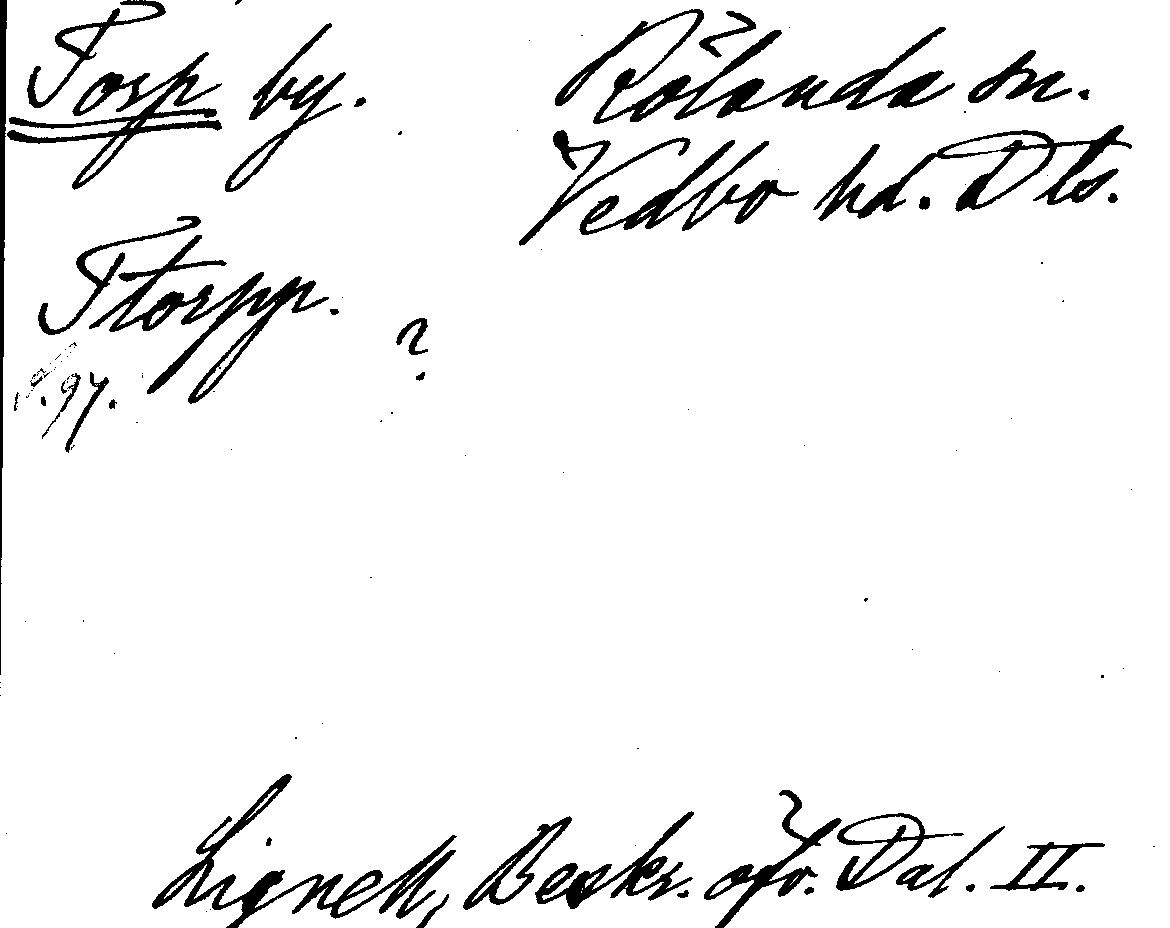 Torp by. Rölanda sn.
Vedbo hd. Dls.
Ttorpp.
S. 97. ?
Lignell, Beskr. öfv. Dal. II.